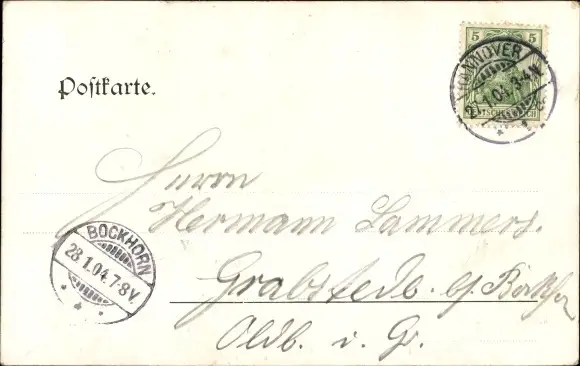 5 5
HANNOVER
27.1.04.3-4N.
DEUTSCHES REICH
Postkarte.
Herrn
Hermann Lammers.
BOCKHORN
28.1.04.7-8V.
Grabstede b/
Oldb. i. Gr.